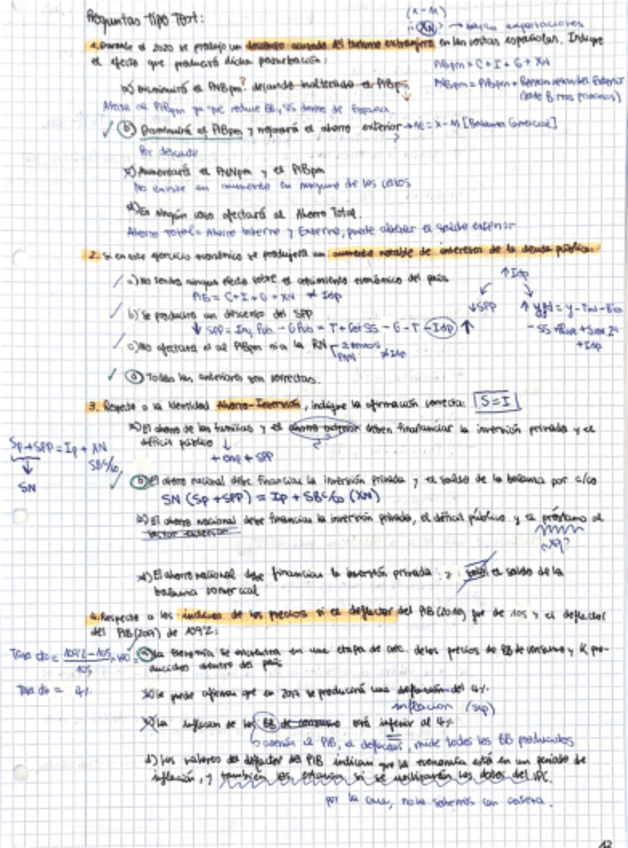 Preguntas Tipo Test:
(x-M)
XN → bajan exportaciones
1. Durante el 2020 se produjo un descenso acusado del turismo extranjero en las visitas españolas. Indique
el efecto que producirá dicha perturbación:
PIBpm = C + I + G + XN
a) Disminuirá el PNBpm? dejando inalterado el PIBpm
Afecta al PIBpm ya que reduce BB y SS dentro de España
✓ b) Disminuirá el PIBpm y mejorará el ahorro exterior → = X - M [Balanza Comercial]
?
Por descarte
c) Aumentará el PNNpm y el PIBpm
No existe un aumento en ninguno de los casos
d) En ningún caso afectará al Ahorro Total.
Ahorro total = Ahorro Interno y Externo, puede alterar el saldo exterior
2. Si en este ejercicio económico se produjera un aumento notable de intereses de la deuda pública:
a) No tendrá ningún efecto sobre el crecimiento económico del país
PIB = C + I + G + XN ≠ Idp
↑ Idp
b) Se producirá un descenso del SPP
↓ SPP
c) No afectará ni al PIBpm ni a la RN
≠ Idp
+ Idp
✓ d) Todas las anteriores son correctas.
3. Respecto a la identidad Ahorro-Inversión, indique la afirmación correcta: S = I
a) El ahorro de las familias y el ahorro exterior deben financiar la inversión privada y el
déficit público
Sp + SPP = Ip + XN
SBc/c
SN
✓ b) El ahorro nacional debe financiar la inversión privada y el saldo de la balanza por c/c
SN (Sp + SPP) = Ip + SBc/c (XN)
c) El ahorro nacional debe financiar la inversión privada, el déficit público y el préstamo al
sector exterior
¿XN?
d) El ahorro nacional debe financiar la inversión privada y el saldo de la
balanza comercial
4. Respecto a los índices de los precios si el deflector del PIB (2016) fue de 105 y el deflector
del PIB (2017) de 109'2:
Tasa de = 109'2 - 105 / 105 × 100 =
a) La economía se encuentra en una etapa de crec. de los precios de BB de consumo y K pro-
ducidos dentro del país
Tasa de = 4%
b) Se puede afirmar que en 2017 se producirá una deflación del 4%
inflación (sup)
c) La inflación de los BB de consumo está inferior al 4%
además el PIB, el deflactor, mide todos los BB producidos
d) Los valores del deflector del PIB indican que la economía está en un periodo de
inflación, y también lo estaría si se utilizarán los datos del IPC.
por la cara, no lo sabemos con certeza.